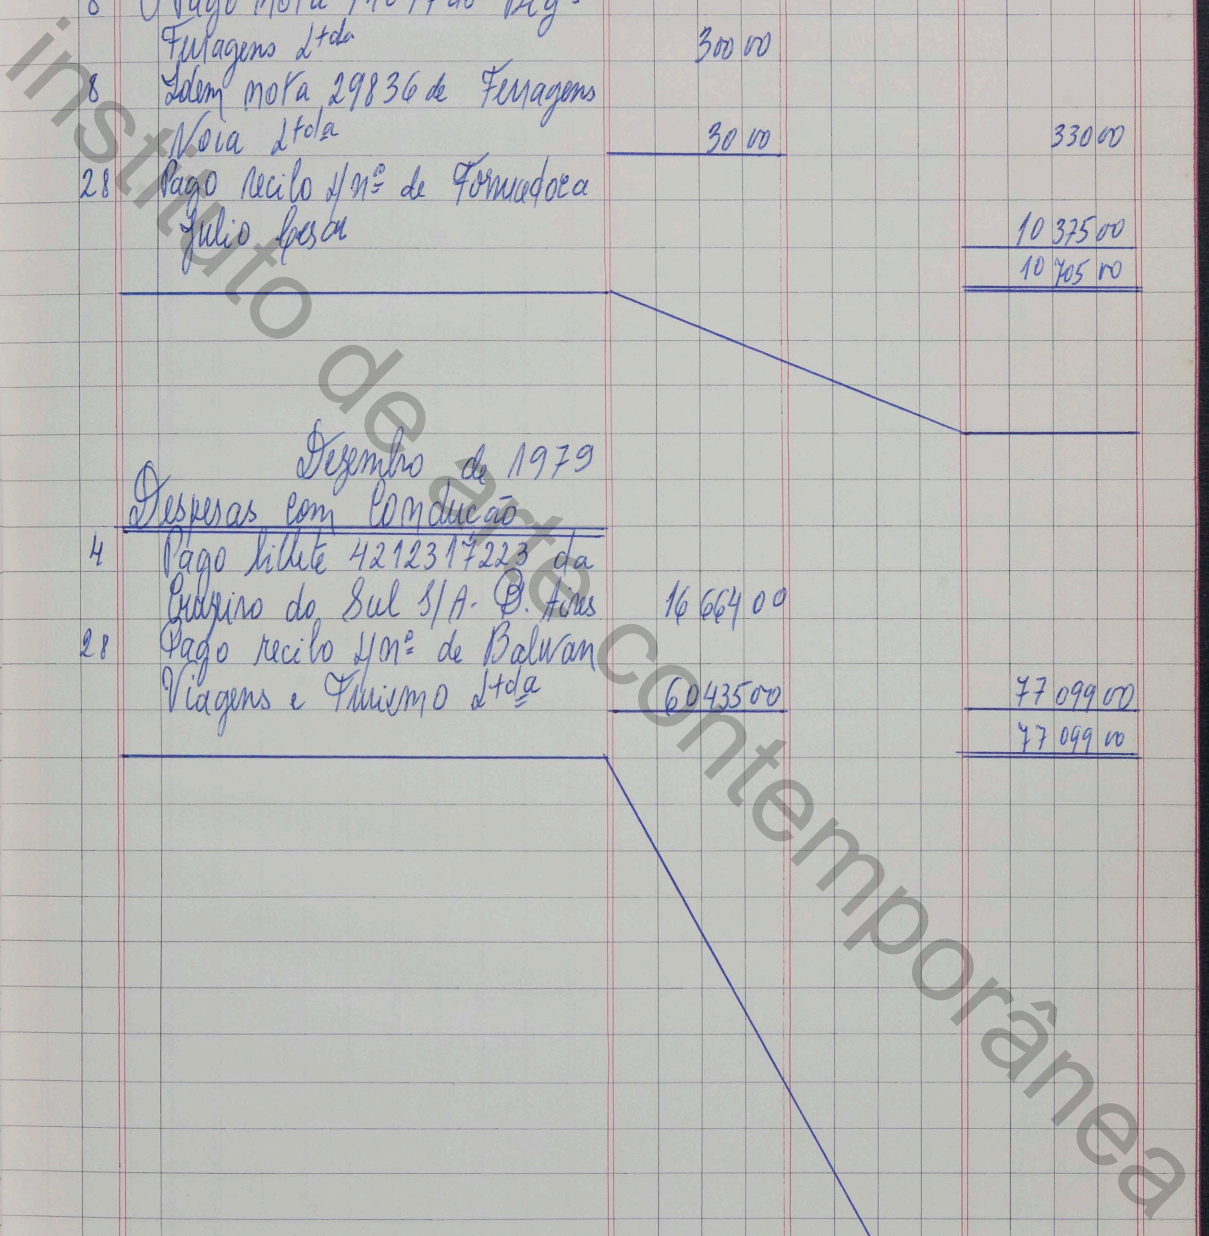 8 Pago nota
Ferragens Ltda 300 00
8 Idem nota 29836 de Ferragens
Noia Ltda 30 00 330 00
28 Pago recibo s/nº de
Julio Cesar 10 375 00
10 705 00
Dezembro de 1979
Despesas com Condução
4 Pago bilhete 4212317223 da
Cruzeiro do Sul S/A - B. Aires 16 664 00
28 Pago recibo s/nº de
Viagens e Turismo Ltda 60 435 00 77 099 00
77 099 00
instituto de arte contemporânea